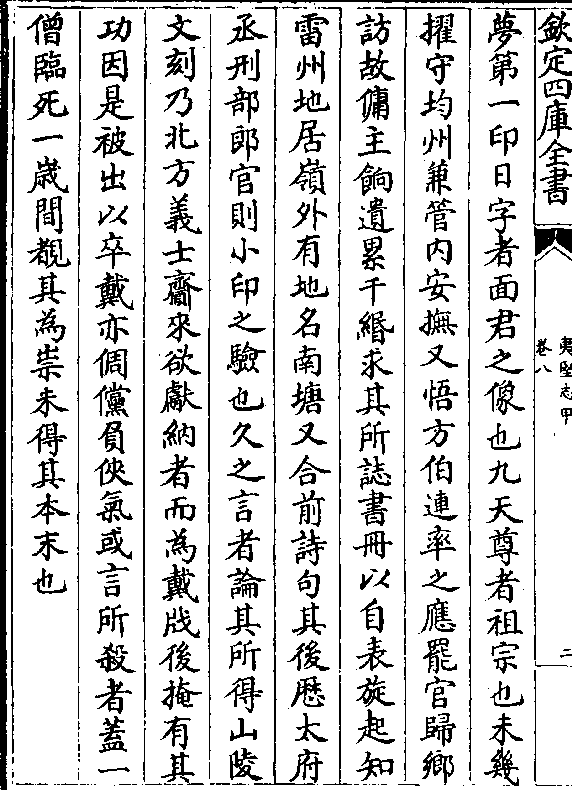 欽定四庫全書
夷堅志甲
卷八
二
夢第一印日字者面君之像也九天尊者祖宗也未幾
擢守均州兼管内安撫又悟方伯連率之應罷官歸鄉
訪故傭主餉遺累千緡求其所誌書冊以自表旋起知
雷州地居嶺外有地名南塘又合前詩句其後歴太府
丞刑部郎官則小印之驗也久之言者論其所得山陵
文刻乃北方義士齎來欲獻納者而為戴戕後掩有其
功因是被出以卒戴亦倜儻負俠氣或言所殺者蓋一
僧臨死一歳間覩其為祟未得其本末也